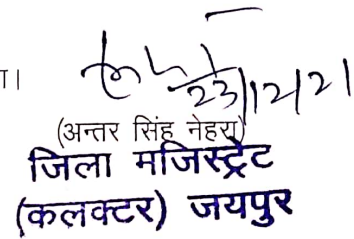 ा।
23/12/21
(अन्तर सिंह नेहरा)
जिला मजिस्ट्रेट
(कलक्टर) जयपुर